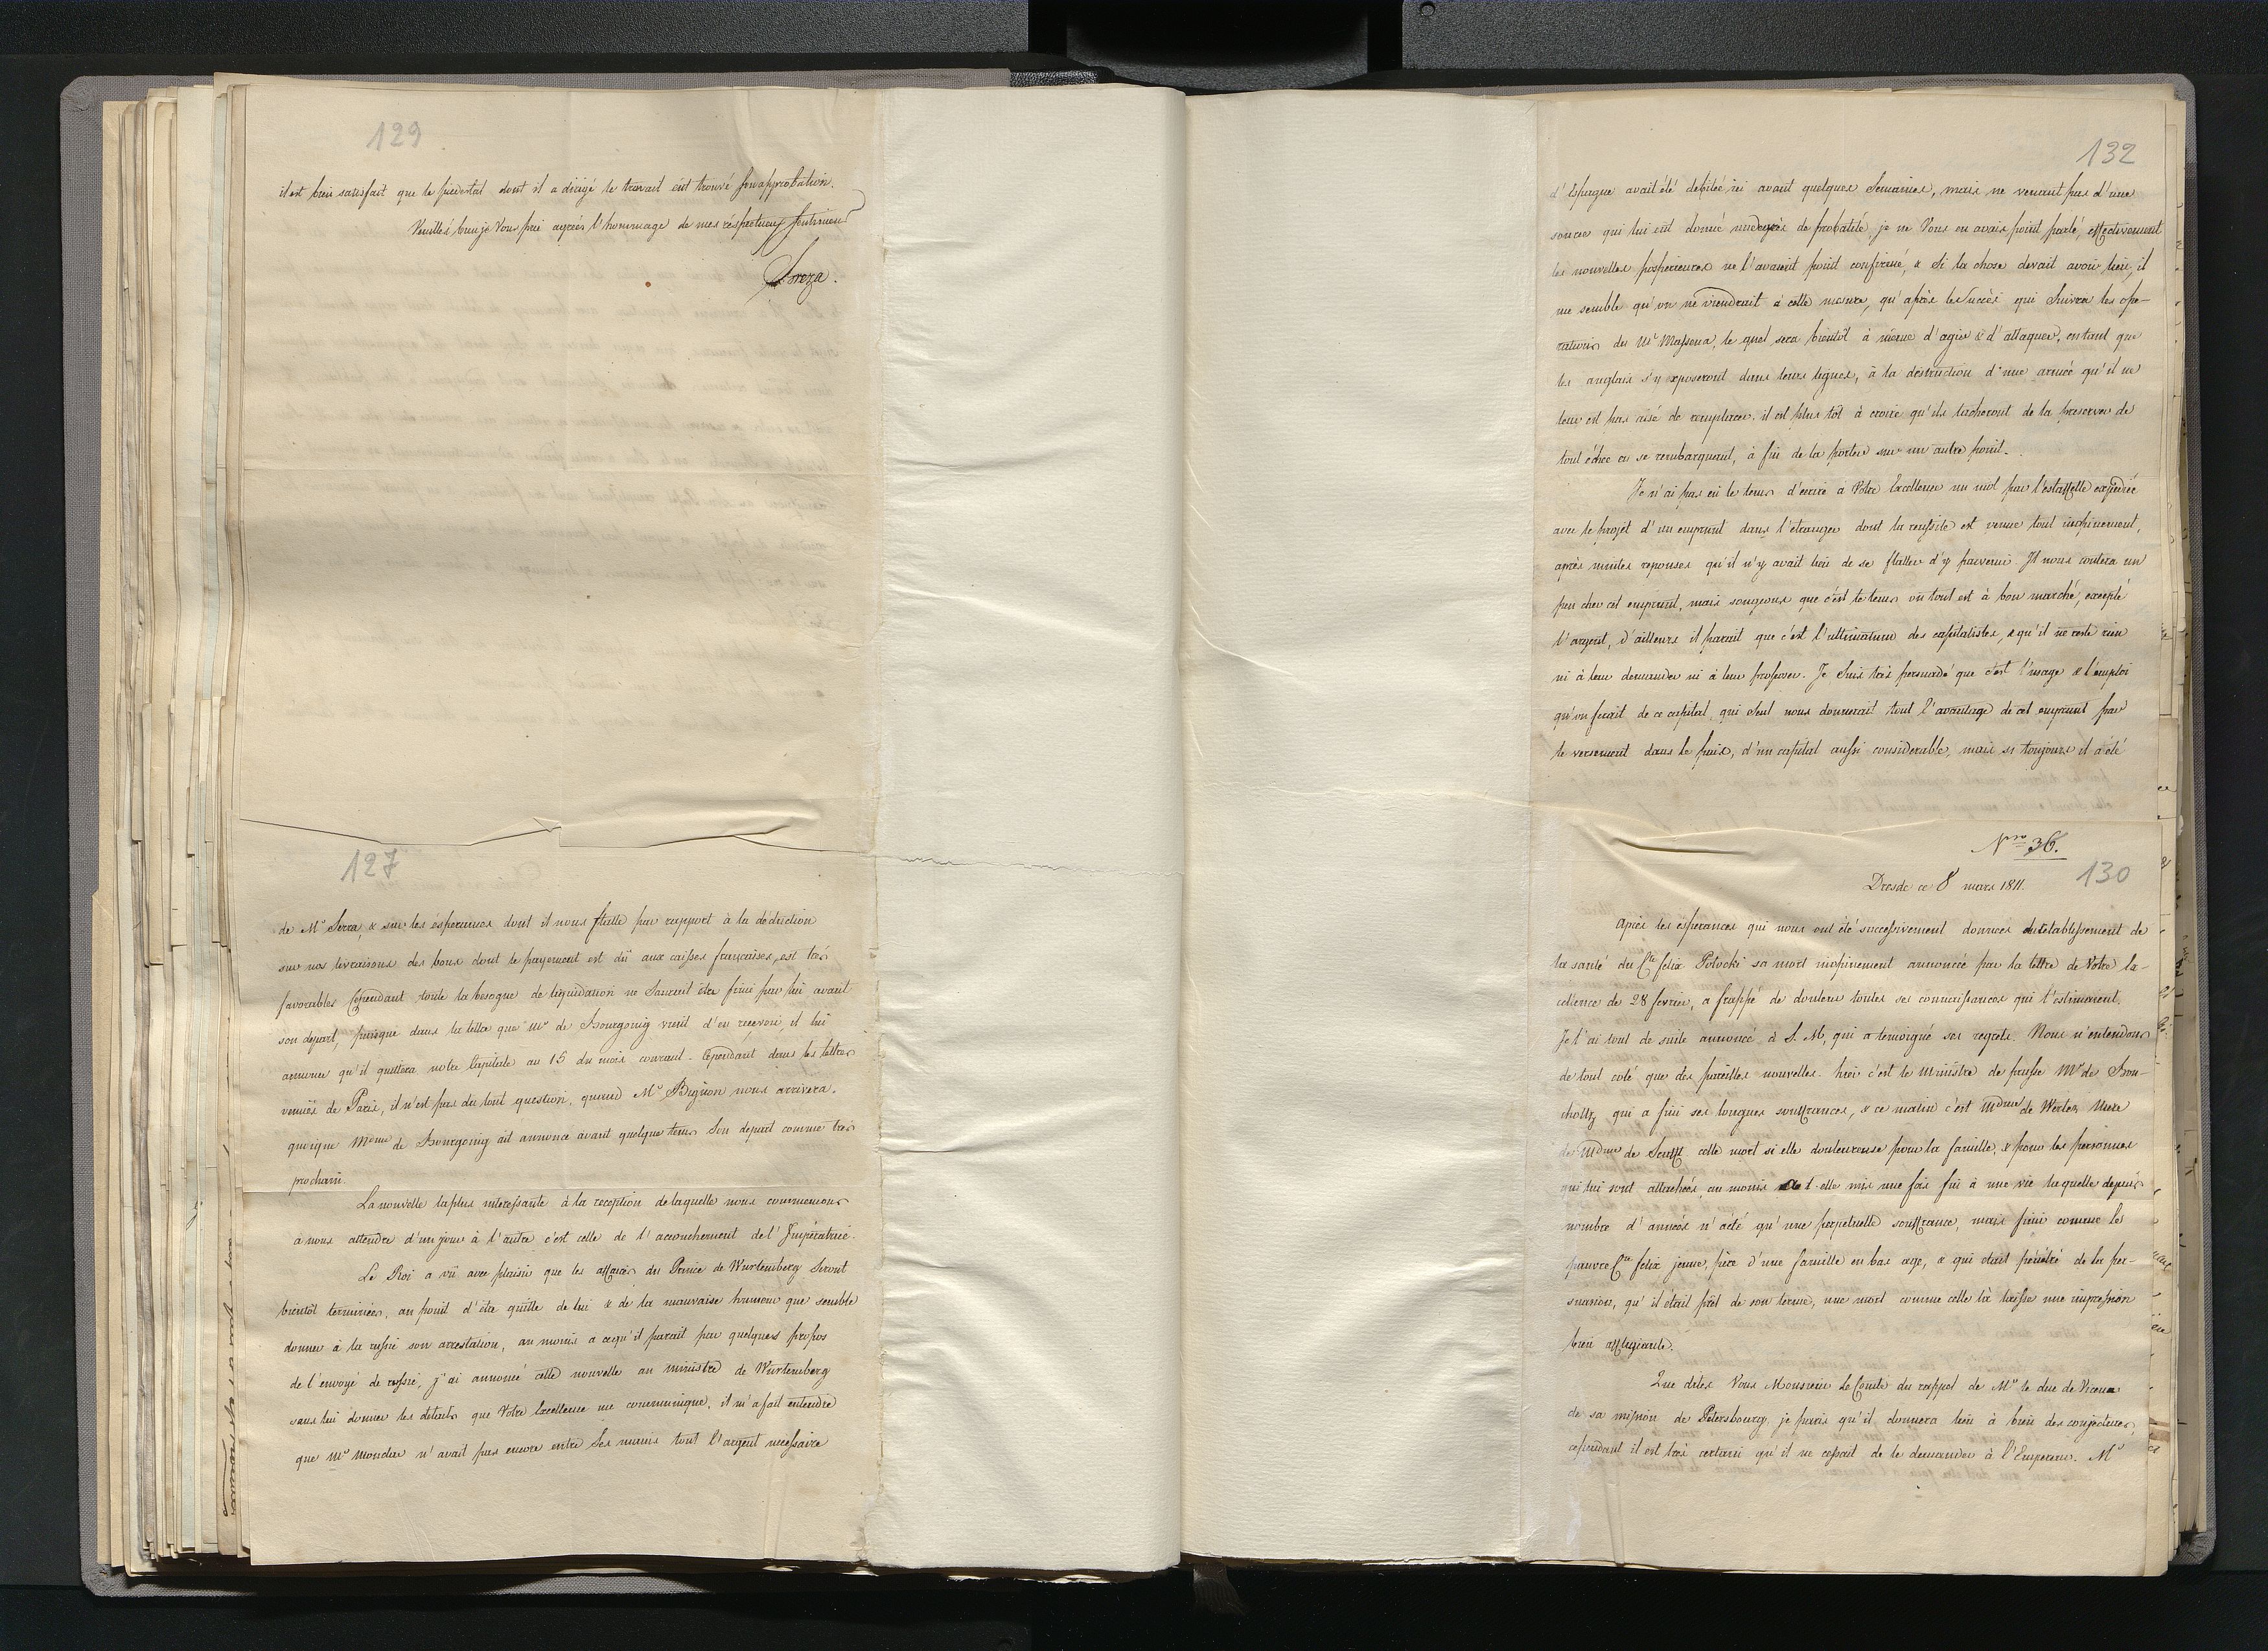 129
il est bien satisfait que le piédestal dont il a dirigé le travail eût trouvé son approbation.
Veuillés bien je Vous prie agréer l'hommage de mes réspectueux sentimens
Breza.
127
de Mr Serra, & sur les ésperances dont il nous flatte par rapport à la déduction
sur nos livraisons des bons dont le payement est dû aux caisses françaises, est très
favorables Cependant toute la besogne de liquidation ne Saurait être finie par lui avant
son départ, puisque dans la lettre que Mr de Bourgoing vient d'en reçevoir, il lui
annonce qu'il quittera notre Capitale au 15 du mois courant. Cependant dans les lettres
venuës de Paris, il n'est pas du tout question, quand Mr Bignon nous arrivera,
quoique Mdme de Bourgoing ait annoncé avant quelque tems Son depart comme très
prochain.
La nouvelle la plus interessante à la reception de laquelle nous commençons
à nous attendre d'un jour à l'autre c'est celle de l'accouchement de l'Impératrice.
Le Roi a vû avec plaisir que les affaires du Prince de Wurtemberg Seront
bientôt terminées, au point d'être quitte de lui & de la mauvaise humeur que semble
donner à la russie son arrestation, au moins a cequ'il parait par quelques propos
de l'envoyé de russie, j'ai annoncé cette nouvelle au ministre de Wurtemberg
sans lui donner les détails que Votre Excellence me communique, il m'a fait entendre
que Mr n'avait pas encore entre Ses mains tout l'argent necessaire
132
d'Espagne avait été debitée ici avant quelques Semaines, mais ne venant pas d'une
source qui lui eût donné un degrés de probabilité, je ne Vous en avais point parlé, effectivement
les nouvelles posterieures ne l'avaient point confirmé, & Si la chose devait avoir lieu, il
me semble qu'on ne viendrait à cette mesure, qu'après le Succès qui Suivra les ope-
rations du Mr Massena, le quel sera bientôt à même d'agir & d'attaquer, entant que
les anglais s'y exposeront dans leurs lignes, à la déstruction d'une armée qu'il ne
leur est pas aisé de remplacer. il est plus tôt à croire qu'ils tacheront de la preserver de
tout échec en se rembarquant, à fin de la porter sur un autre point.
Je n'ai pas eû le tems d'ecrire à Votre Excellence un mot par l'estaffette expediée
avec le projét d'un emprunt dans l'etranger dont la reussite est venue tout inopinement,
après maintes reponses qu'il n'y avait lieu de se flatter d'y parvenir. Il nous coutera un
peu cher cet emprunt, mais songeons que c'est le tems où tout est à bon marché, excepté
l'argent, d'ailleurs il parait que c'est l'ultimatum des capitalistes, & qu'il ne reste rien
ni à leur demander ni à leur proposer. Je Suis très persuadé que c'est l'usage & l'emploi
qu'on ferait de ce capital, qui Seul nous donnerait tout l'avantage de cet emprunt par
le versement dans le païs, d'un capital aussi considerable, mais si toujours il a été
Nro 36.
130
Dresde ce 8 mars 1811.
Après les esperances qui nous ont été successivement données du retablissement de
la santé du Cte felix Potocki sa mort inopinement annoncée par la lettre de Votre Ex-
cellence de 28 fevrier, a frappé de douleur toutes ses connaissances qui l'estimaient.
Je l'ai tout de suite annoncé à S. M, qui a temoigné ses regrets. Nous n'entendons
de tout coté que des pareilles nouvelles. hier c'est le Ministre de prusse Mr de Bou-
choltz, qui a fini ses longues souffrances, & ce matin c'est Mdme de Werlen Mere
de Mdme de Senfft, cette mort si elle douleureuse pour la famille, & pour les personnes
qui lui sont attachées, au moins a t-elle mis une fois fin à une vie laquelle depuis
nombre d'années n'a été qu'une perpetuelle souffrance, mais finir comme le
pauvre Cte felix jeune, père d'une famille en bas age, & qui était pénétré de la per-
suasion, qu'il etait prêt de son terme, une mort comme celle là laisse une impression
bien affligeante.
Que dites Vous Monsieur Le Comte du rappel de Mr le duc de Vicence
de sa mission de Petersbourg, je parie qu'il donnera lieu à bien des conjectures,
cependant il est très certain qu'il ne cessait de le demander à l'Empereur. Mr